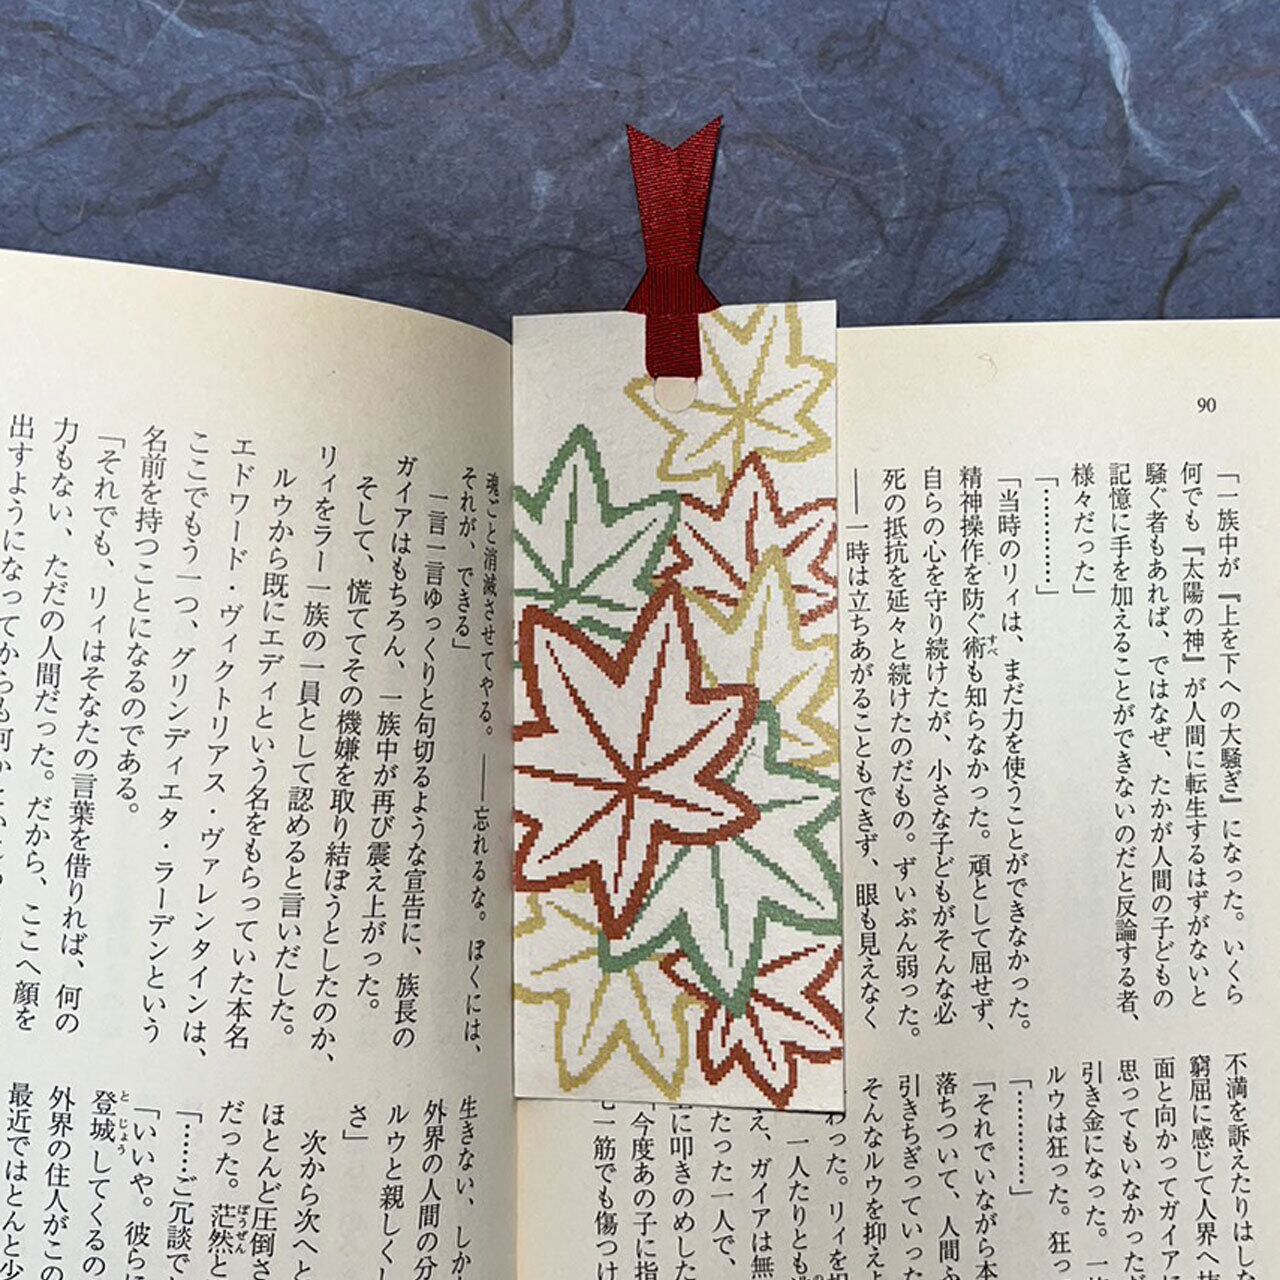 90
「一族中が『上を下への大騒ぎ』になった。いくら
何でも『太陽の神』が人間に転生するはずがないと
騒ぐ者もあれば、ではなぜ、たかが人間の子どもの
記憶に手を加えることができないのだと反論する者、
様々だった」
「…………」
「当時のリィは、まだ力を使うことができなかった。
精神操作を防ぐ術も知らなかった。頑として屈せず、
自らの心を守り続けたが、小さな子どもがそんな必
死の抵抗を延々と続けたのだもの。ずいぶん弱った。
――一時は立ちあがることもできず、眼も見えなく
不満を訴えたりはし
窮屈に感じて人界へ
面と向かってガイア
思ってもいなかっただ
引き金になった。一
ルウは狂った。狂っ
「…………」
「それでいながら本
落ちついて、人間ふ
引きちぎっていった
そんなルウを抑えよ
わった。リィを
一人たりとも
え、ガイアは無
たった一人で、
に叩きのめした
「今度あの子に指
一筋でも傷つけ
魂ごと消滅させてやる。――忘れるな。ぼくには、
それが、できる」
一言一言ゆっくりと句切るような宣告に、族長の
ガイアはもちろん、一族中が再び震え上がった。
そして、慌ててその機嫌を取り結ぼうとしたのか、
リィをラー一族の一員として認めると言いだした。
ルウから既にエディという名をもらっていた本名
エドワード・ヴィクトリアス・ヴァレンタインは、
ここでもう一つ、グリンディエタ・ラーデンという
名前を持つことになるのである。
「それでも、リィはそなたの言葉を借りれば、何の
力もない、ただの人間だった。だから、ここへ顔を
出すようになってからも何か
生きない、しか
外界の人間の分
ルウと親しく
さ」
次から次へと
ほとんど圧倒さ
だった。茫然と
「……ご冗談で
「いいや。彼ら
登城してくるの
外界の住人がこの
最近ではとんと少